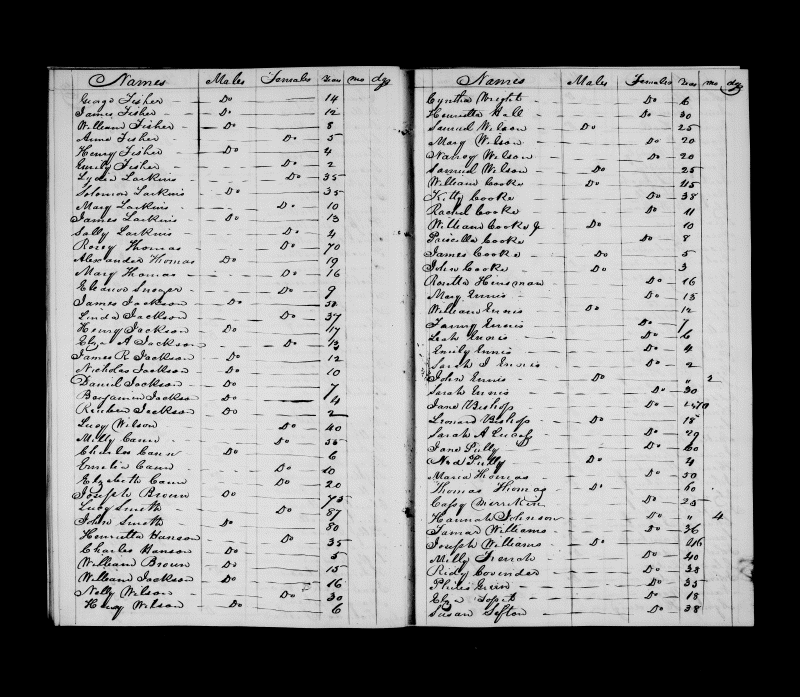 Names Males Females Years mo dys
George Fisher Do 14
James Fisher Do 12
William Fisher Do 8
Anna Fisher Do 5
Henry Fisher Do 4
Emily Fisher Do 2
Lydia Larkins Do 35
Solomon Larkins Do 35
Mary Larkins Do 10
James Larkins Do 13
Sally Larkins Do 4
Thomas Do 70
Alexander Thomas Do 19
Mary Thomas Do 16
Eleanor Do 9
James Jackson Do
Linda Jackson Do 37
Henry Jackson Do 17
Eliza A Jackson Do 13
James R Jackson Do 12
Nicholas Jackson Do 10
Daniel Jackson Do 7
Benjamin Jackson Do 4
Reuben Jackson Do 2
Lucy Wilson Do 40
Milly Cann Do 55
Charles Cann Do 6
Cann Do 10
Elizabeth Cann Do 20
Joseph Brown Do 75
Lucy Smith Do 87
John Smith Do 80
Henrietta Hanson Do 35
Charles Hanson Do 5
William Brown Do 15
William Jackson Do 16
Nelly Wilson Do 30
Wilson Do 6
Names Males Females Years mo dys
Cyntha Wright Do 6
Henrietta Hall Do 30
Samuel Wilson Do 25
Mary Wilson Do 20
Nancy Wilson Do 20
Samuel Wilson Do 25
William Cooke Do 45
Kitty Cooke Do 38
Rachel Cooke Do 11
William Cooke Jr Do 10
Priscilla Cooke Do 8
James Cooke Do 5
John Cooke Do 3
Rosetta Hinsman Do 16
Mary Ennis Do 15
William Ennis Do 12
Fanny Ennis Do 7
Leah Ennis Do 6
Emily Ennis Do 4
Sarah J Ennis Do 2
John Ennis Do " 2
Sarah Ennis Do 30
Jane Bishop Do
Leonard Bishop Do 18
Sarah A Do 29
Jane Pully Do 60
Ned Pully Do 4
Maria Thomas Do 50
Thomas Thomas Do 60
Cassy Do 25
Hannah Johnson Do " 4
Tamar Williams Do 36
Joseph Williams Do
Milly French Do 40
Ridy Covender Do 38
Philis Green Do 35
Eliza Do 18
Susan Sefton Do 38